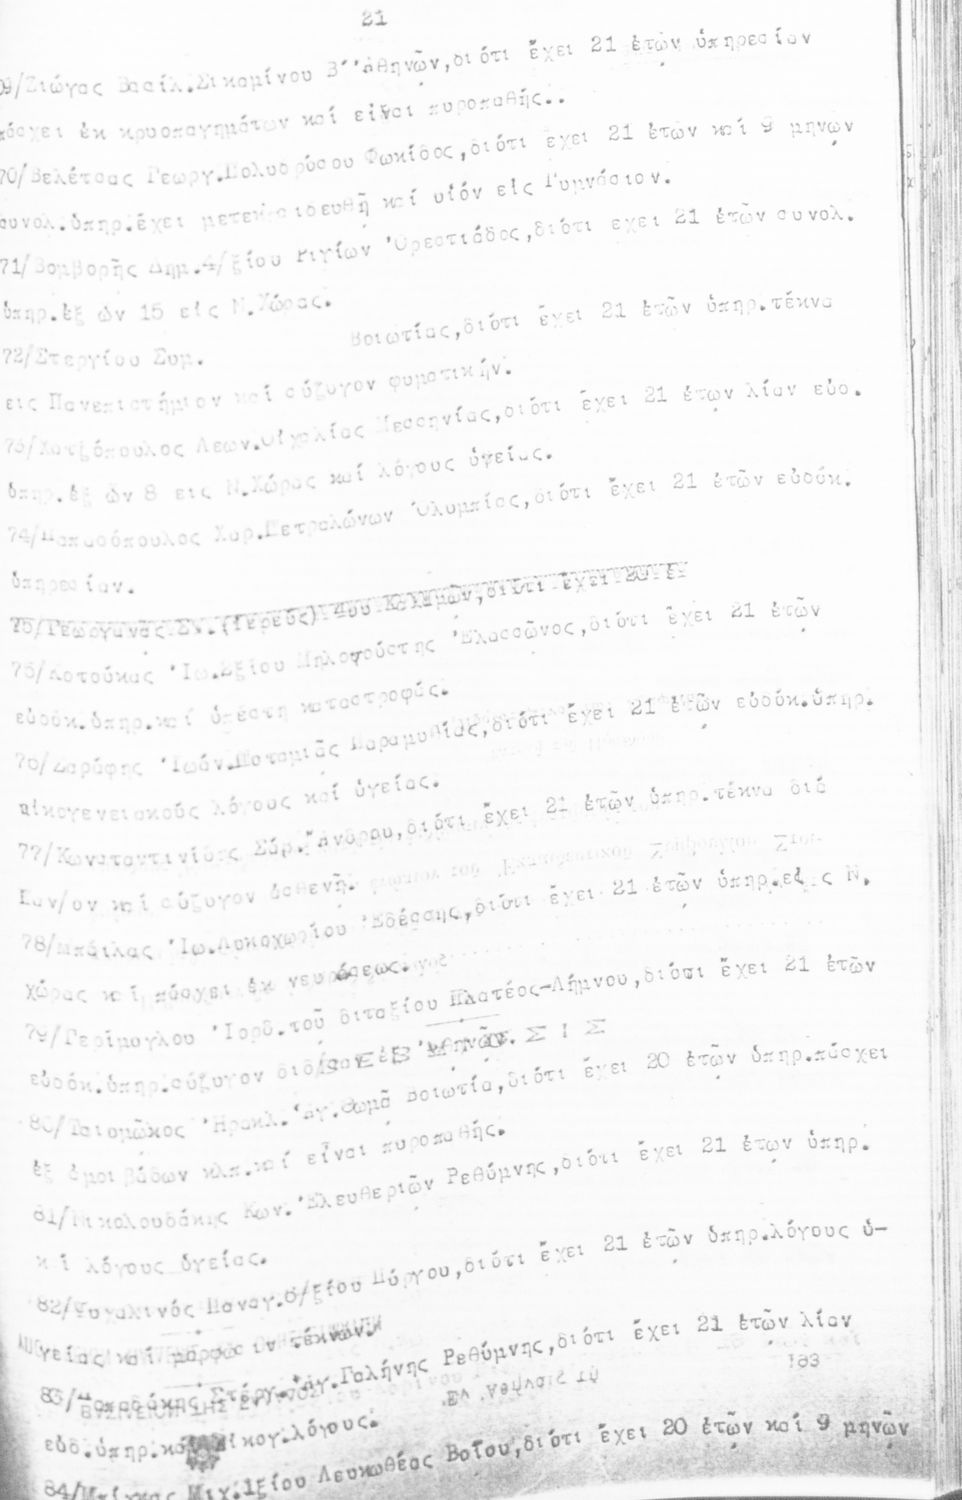 21
69/Ζιώγας Βασίλ.Συκαμίνου Β΄'Αθηνῶν,διότι ἔχει 21 ἐτῶν ὑπηρεσίαν
πάσχει ἐκ κρυοπαγημάτων καί εἶναι πυροπαθής..
70/Βελέτσας Γεωργ.Πολυδρόσου Φωκίδος,διότι ἔχει 21 ἐτῶν καί 9 μηνῶν
συνολ.ὑπηρ.ἔχει μετεκπαιδευθῆ καί υἱόν εἰς Γυμνάσιον.
71/Βομβορῆς Δημ.4/ξίου Ριγίων 'Ορεστιάδος,διότι εχει 21 ἐτῶν συνολ.
ὑπηρ.ἐξ ὧν 15 εἰς Ν.Χώρας.
72/Στεργίου Συμ. Βοιωτίας,διότι ἔχει 21 ἐτῶν ὑπηρ.τέκνα
εις Πανεπιστήμιον καί σύζυγον φυματικήν.
73/Χατζόπουλος Λεων.Οἰχαλίας Μεσσηνίας,διότι ἔχει 21 ἐτων λίαν εὐδ.
ὑπηρ.ἐξ ὧν 8 εις Ν.Χώρας καί λόγους ὑγείας.
74/Παπαδόπουλος Χαρ.Πετραλώνων 'Ολυμπίας,διότι ἔχει 21 ἐτῶν εὐδόκ.
ὑπηρεσίαν.
75/Γεωργανᾶς Σν.(ἱερεύς) 4ου Καλαμῶν,διότι ἔχει 20 ἐ-
75/Κοτούκας 'Ιω.2ξίου Μηλογούστης 'Ελασσῶνος,διότι ἔχει 21 ἐτῶν
εὐδόκ.ὑπηρ.καί ὑπέστη καταστροφάς.
76/Ζαράφης 'Ιωάν.Ποταμιᾶς Παραμυθίας,διότι ἔχει 21 ἐτῶν εὐδόκ.ὑπηρ.
οἰκογενειακούς λόγους καί ὑγείας.
77/Κωνσταντινίδης Σάρ.Ἄνδρου,διότι ἔχει 21 ἐτῶν ὑπηρ.τέκνα διά
Παν/ον καί σύζυγον ἀσθενῆ.
78/Μπάιλας 'Ιω.Λυκοχωρίου 'Εδέσσης,διότι ἔχει 21 ἐτῶν ὑπηρ.εἰς Ν.
χώρας καί πάσχει ἐκ νευρώσεως.
79/Γερίμογλου 'Ιορδ.τοῦ διταξίου Πλατέος-Λήμνου,διότι ἔχει 21 ἐτῶν
εὐδόκ.ὑπηρ.σύζυγον διδ/σαν ἐξ 'Αθηνῶν.
80/Τσιομῶκος 'Ηρακλ.'Αγ.Θωμᾶ Βοιωτία,διότι ἔχει 20 ἐτῶν ὑπηρ.πάσχει
ἐξ ἀμοιβάδων κλπ.καί εἶναι πυροπαθής.
81/Νικολουδάκης Κων.'Ελευθεριῶν Ρεθύμνης,διότι ἔχει 21 ἐτων ὑπηρ.
καί λόγους ὑγείας.
82/Ψυχαλινός Παναγ.6/ξίου Πύργου,διότι ἔχει 21 ἐτῶν ὑπηρ.λόγους ὑ-
γείας καί μόρφωσιν τέκνων.
83/Παπαδάκης Στέργ.'Αγ.Γαλήνης Ρεθύμνης,διότι ἔχει 21 ἐτῶν λίαν
εὐδ.ὑπηρ.καί οἰκογ.λόγους.
84/Μπίγκας Μιχ.1ξίου Λευκοθέας Βοΐου,διότι ἔχει 20 ἐτῶν καί 9 μηνῶν